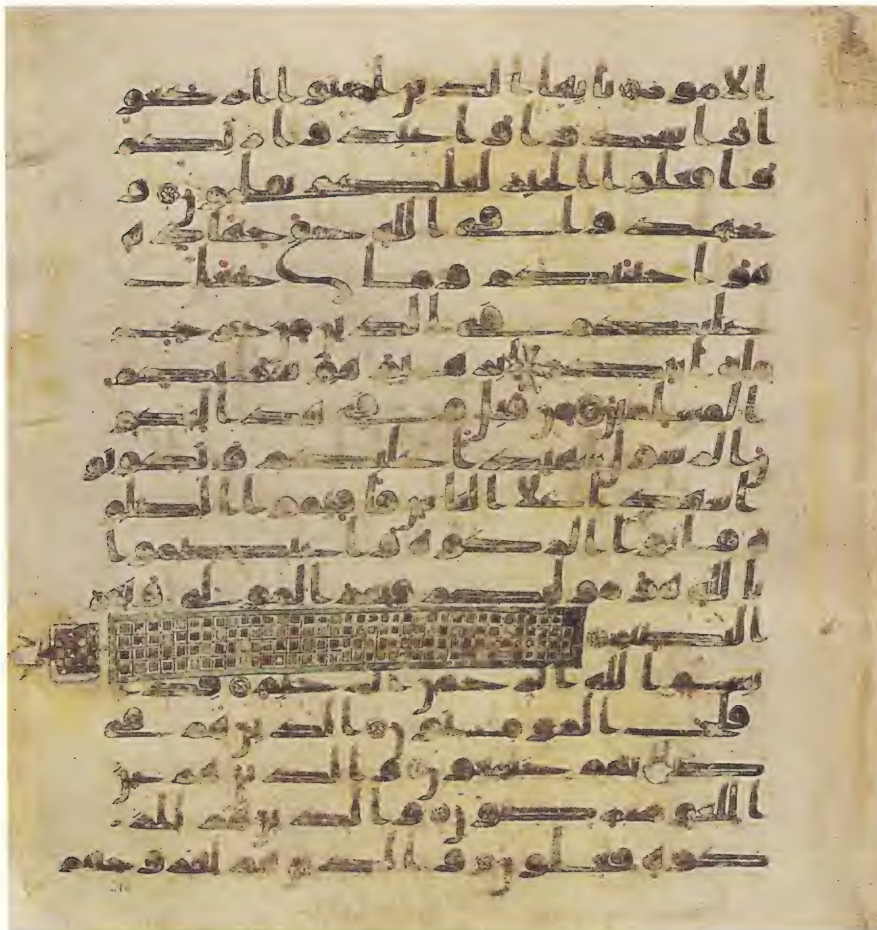 الامور يايها الذين امنوا اركعو
ا واسجدوا واعبدوا ربكم
وافعلوا الخير لعلكم تفلحون و
جهدوا في الله حق جهاده
هو اجتبيكم وما جعل
عليكم في الدين من حرج
ملة ابيكم ابرهيم هو سميكم
المسلمين من قبل وفي هذا ليكو
ن الرسول شهيدا عليكم وتكونوا
شهدا على الناس فاقيموا الصلو
ة واتوا الزكوة واعتصموا
بالله هو موليكم فنعم المولى ونعم
النصير
بسم الله الرحمن الرحيم قد ا
فلح المومنون الذين هم في
صلاتهم خشعون والذين هم عن
اللغو معرضون والذين هم للز
كوة فعلون والذين هم لفروجهم